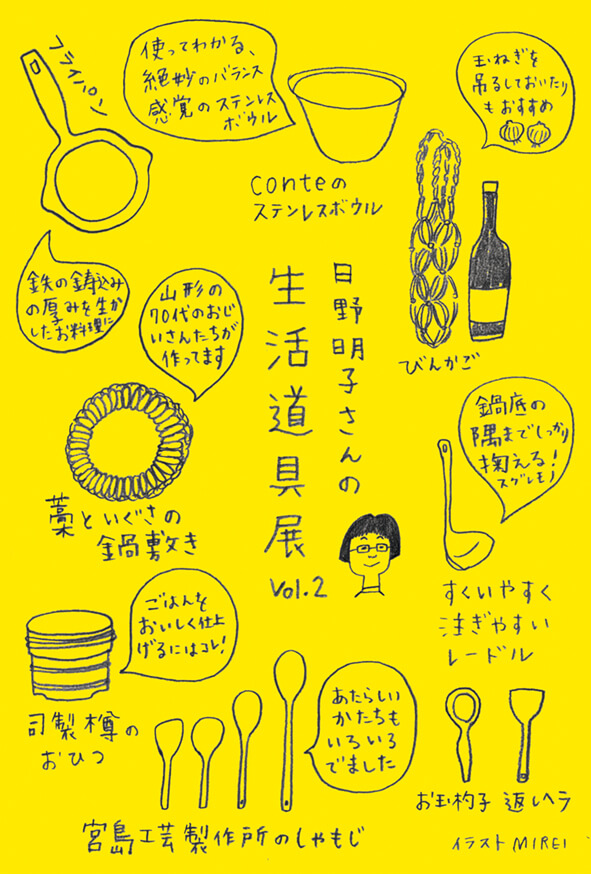 フライパン
使ってわかる、
絶妙のバランス
感覚のステンレス
ボウル
玉ねぎを
吊るしておいたり
もおすすめ
conteの
ステンレスボウル
鉄の鋳込み
の厚みを生か
したお料理に
山形の
70代のおじ
いさんたちが
作ってます
日野明子さんの
生活道具展
vol.2
びんかご
鍋底の
隅までしっかり
掬える!
スグレモノ
藁といぐさの
鍋敷き
すくいやすく
注ぎやすい
レードル
ごはんを
おいしく仕上
げるにはコレ!
司製樽の
おひつ
あたらしい
かたちも
いろいろ
でました
お玉杓子 返しヘラ
宮島工芸製作所のしゃもじ
イラスト MIREI